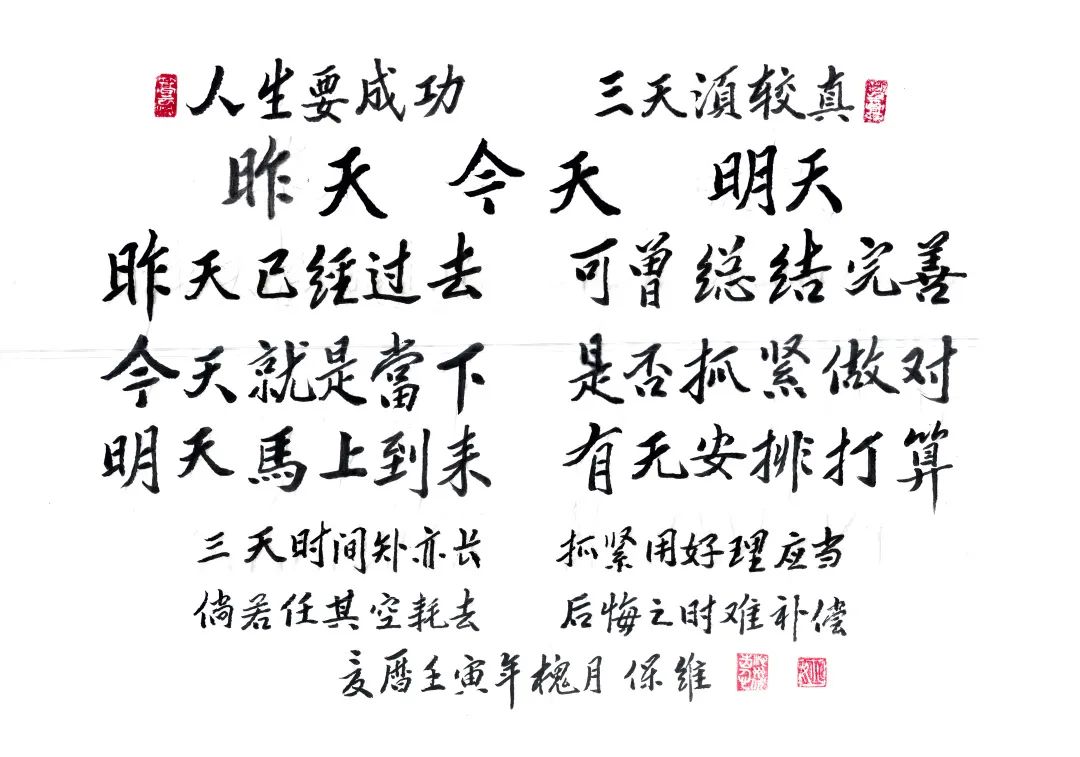 人生要成功 三天須较真
昨天 今天 明天
昨天已經过去 可曾總结完善
今天就是當下 是否抓紧做对
明天馬上到来 有无安排打算
三天时间短亦长 抓紧用好理应当
倘若任其空耗去 后悔之时难补偿
夏曆壬寅年槐月 保维